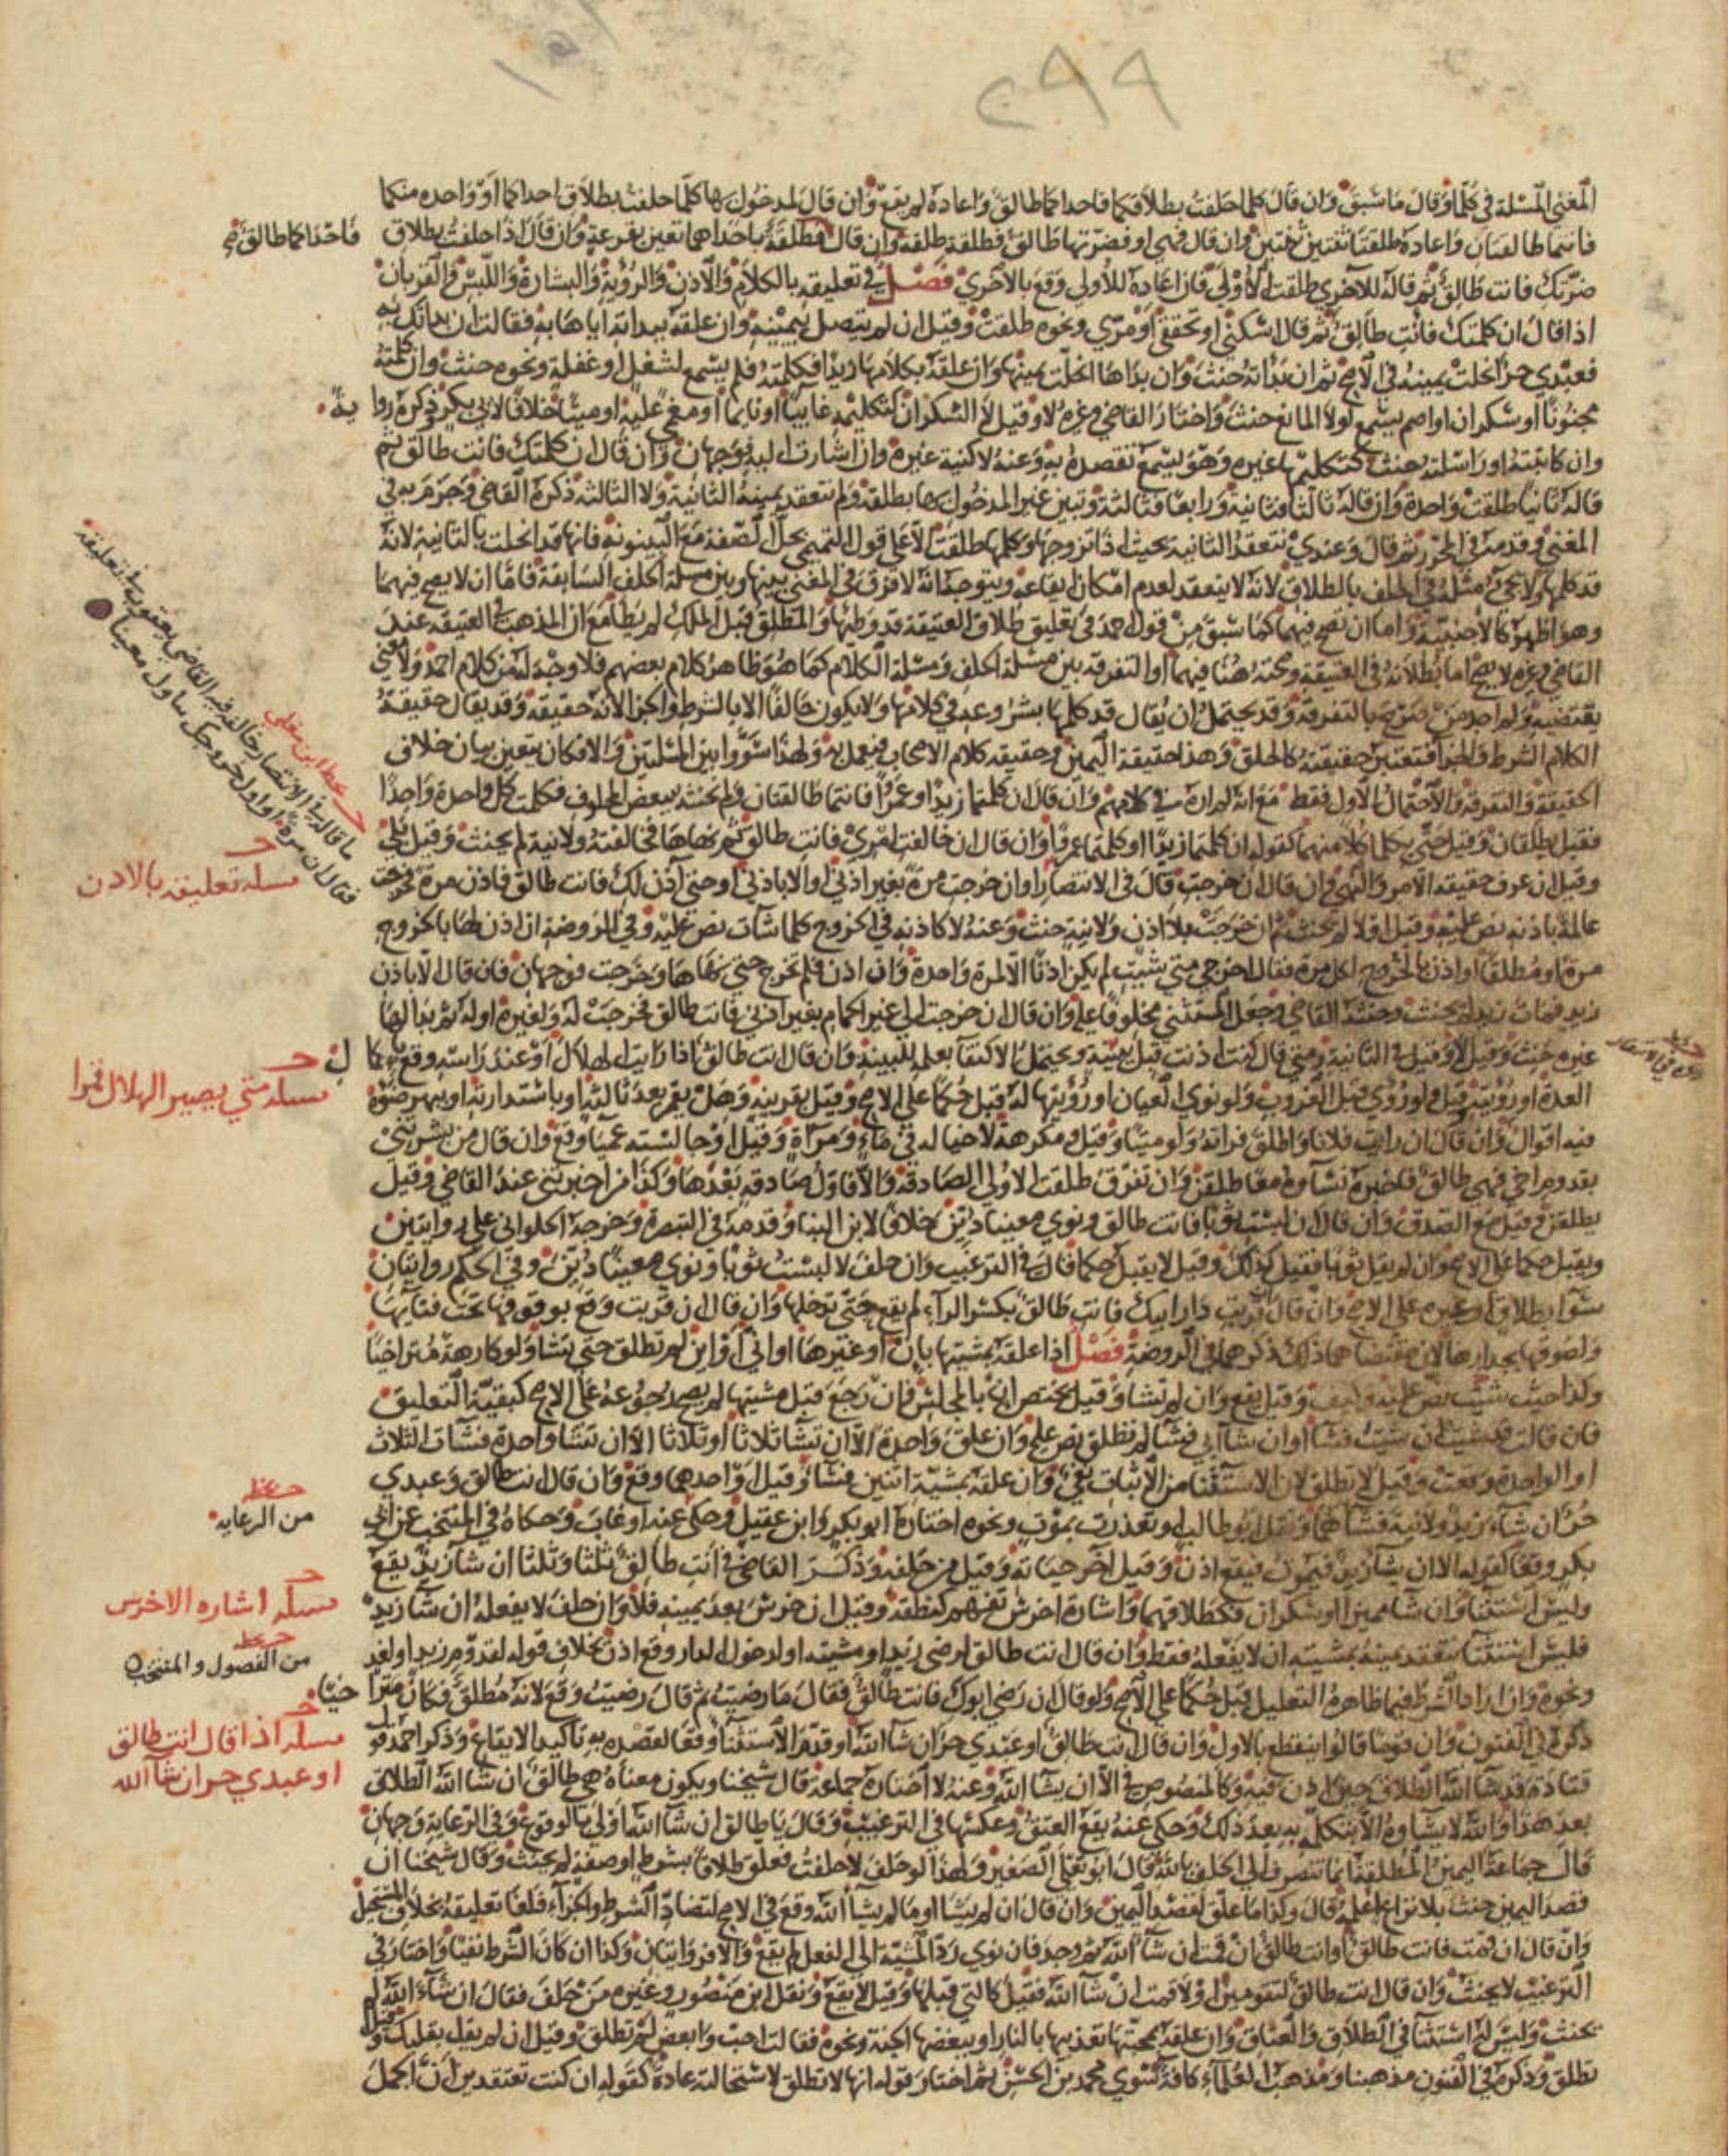 ٢٩٩
المغني المسلة في كلما وقال ما سبق وان قال كلما حلفت بطلاقكما فاحداكما طالق واعاده لم يقع وان قال لمدخول بها كلما حلفت بطلاق احداكما او واحده منكما
فانتما طالقتان واعاده طلقتا ثنتين ثنتين وان قال فهي او فضرتها طالق فطلقة طلقة وان قال فطلقة باحداهما تعين بقرعة وان قال اذا حلفت بطلاق
فاحداكما طالق
ضرتك فانت طالق ثم قاله للاخرى طلقت الاولى فان اعاده للاولى وقع بالاخرى فصل في تعليقه بالكلام والاذن والرؤية والبشارة واللبس والقربان
اذا قال ان كلمتك فانت طالق ثم قال اسكتي او تحققي او مري ونحوه طلقت وقيل ان لم يتصل بيمينه وان علقه ببداته اياها به فقالت ان بداتك به
فعبدي حر انحلت يمينه في الاصح ثم ان بداته حنث وان بداها انحلت يمينها وان علقه بكلامها زيدا فكلمته فلم يسمع لشغل او غفلة ونحوه حنث وان كلمته
مجنونا او سكران او اصم يسمع لولا المانع حنث واختار القاضي وغيره لا وقيل لا السكران كتكليمه غايبا او نايما او مغمى عليه او ميتا خلافا لابي بكر وذكره رواية
وان كاتبته او راسلته حنث كتكليمها غيره وهو يسمع تقصده به وعنه لا كنية غيره وان اشارت اليه فوجهان وان قال ان كلمتك فانت طالق ثم
قاله ثانيا طلقت واحدة وان قاله ثالثا فثانية ورابعا فثالثة وتبين غير المدخول بها بطلقة ولم تنعقد يمينه الثانية ولا الثالثة ذكره القاضي وجزم به في
المغني وقدمه في المحرر ثم قال وعندي تنعقد الثانية بحيث اذا تزوجها وكلمها طلقت الا على قول التميمي بحل الصفة مع البينونة فانها قد انحلت بالثانية لانه
قد كلمها ولا يجيء مثله في الحلف بالطلاق لانه لا ينعقد لعدم امكان ايقاعه ويتوجه انه لا فرق في المعنى بينها وبين مسلة الحلف السابقة فاما ان لا يصح فيهما
وهو اظهر كالاجنبية واما ان تصح فيهما كما سبق من قول احمد في تعليق طلاق العتيقة قد وطئها والمطلق قبل الملك لم يطا مع ان المذهب في العتيقة عند
القاضي وغيره لا يصح اما بطلانه في العتيقة وصحته هنا فيهما او التفرقة بين مسلة الحلف ومسلة الكلام كما هو ظاهر كلام بعضهم فلا وجه له من كلام احمد ولا معنى
يقتضيه ولم اجد من صرح بالتفرقة وقد يحتمل ان يقال قد كلمها بشروعه في كلامها ولا يكون حالفا الا بالشرط والجزا لانه حقيقة وقد يقال حقيقة
الكلام الشرط والجزا فتعتبر حقيقته كالحلف وهذا حقيقة اليمين وحقيقة كلام الاصحاب فيعمل به ولهذا سووا بين المسلتين والا فكان يتعين بيان خلاف
الحقيقة والتفرقة والاحتمال الاول فقط مع انه لم اره في كلامهم وان قال ان كلمتما زيدا وعمرا فانتما طالقتان ولم نحنثه ببعض المحلوف فكلمت كل واحدة واحدا
فقيل يطلقان وقيل حتى يكلما كلا منهما كقوله ان كلمتما زيدا او كلمتما عمرا وان قال ان خالفت امري فانت طالق ثم نهاها فخالفته ولا نية لم يحنث وقيل بلى
وقيل ان عرف حقيقة الامر والنهي وان قال ان خرجت قال في الانتصار او ان خرجت مرة بغير اذني او الا باذني او حتى اذن لك فانت طالق فاذن مرة فخرجت
عالمة باذنه نص عليه وقيل او لا لم يحنث ثم ان خرجت بلا اذن ولا نية حنث وعنه لا كاذنه في الخروج كلما شات نص عليه وفي الروضة ان اذن لها بالخروج
مرة او مطلقا او اذن بالخروج لكل مرة فقال اخرجي متى شيت لم يكن اذنا الا لمرة واحدة وان اذن فلم تخرج حتى نهاها وخرجت فوجهان فان قال الا باذن
زيد فمات زيد لم يحنث وحنثه القاضي وجعل المستثنى محلوفا عليه وان قال ان خرجت الى غير الحمام بغير اذني فانت طالق فخرجت له ولغيره او له ثم بدا لها
غيره حنث وقيل لا وقيل في الثانية ومتى قال كنت اذنت قبل ببينة ويحتمل الاكتفا بعلمه لبينة وان قال انت طالق اذا رايت الهلال او عند راسه وقع باكمال
العدة او رؤيته وقيل ولو رؤي قبل الغروب ولو نوى العيان او رؤيتها له قبل حكما على الاصح وقيل بقرينة وهل يقمر بعد ثالثة او باستدارته او ببهر ضوءه
فيه اقوال وان قال ان رايت فلانا واطلق فراته ولو ميتا وقيل ومكرهة لا خياله في ماء ومرآة وقيل او جالسته عميا وقع وان قال من بشرتني
بقدوم اخي فهي طالق فاخبره نساوه معا طلقن وان تفرق طلقت الاولى الصادقة والا فاول صادقة بعدها وكذا من اخبرتني عند القاضي وقيل
يطلقن وقيل مع الصدق وان قال ان لبست ثوبا فانت طالق ونوى معينا دين خلافا لابن البنا وقدمه في التبصرة وخرجه الحلواني على روايتين
ويقبل حكما على الاصح وان لم يقل ثوبا فقيل كذلك وقيل لا يقبل حكما قال في الترغيب وان حلف لا لبست ثوبا ونوى معينا دين وفي الحكم روايتان
سوا بطلاق او غيره على الاصح وان قال ان قربت دار ابيك فانت طالق بكسر الراء لم يقع حتى تدخلها وان قال ان قربت وقع بوقوفها تحت فنايها
ولصوقها بجدارها لان مقتضاهما ذلك ذكرهما في الروضة فصل اذا علقه بمشيتها بان او غيرها او انى او اين لم تطلق حتى تشا ولو كارهة متراخيا
وكذا حيث شيت نص عليه وكيف وقيل يقع وان لم تشا وقيل يختص ان بالمجلس فان رجع قبل مشيتها لم يصح رجوعه على الاصح كبقية التعليق
فان قالت قد شيت ان شيت فشا او ان شا ابي فشا لم تطلق نص عليه وان علق واحدة الا ان تشا ثلاثا او ثلاثا الا ان تشا واحدة فشات الثلاث
او الواحدة وقعت وقيل لا تطلق لان الاستثنا من الاثبات نفي وان علقه بمشية اثنين فشا وقيل او احدهما وقع وان قال انت طالق وعبدي
حر ان شاء زيد ولا نية فشاهما ونقل ابو طالب او تعذرت بموت ونحوه اختاره ابو بكر وابن عقيل وحكي عنه او غاب وحكاه في المنتخب عن ابي
بكر وقع كقوله الا ان يشا زيد فيموت فيقع اذن وقيل اخر حياته وقيل من حلفه وذكر القاضي في انت طالق ثلثا وثلثا ان شا زيد يقع
وليس استثنا وان شا مميزا او سكران فكطلاقهما واشارة اخرس تفهم كنطقه وقيل ان خرس بعد يمينه فلا وان حلف لا يفعله ان شا زيد
فليس استثنا تنعقد يمينه بمشيته ان لا يفعله فقط وان قال انت طالق لرضى زيد او مشيته او لدخول الدار وقع اذن بخلاف قوله لقدوم زيد او لغد
ونحوه وان اراد الشرط فيما ظاهره التعليل قبل حكما على الاصح ولو قال ان رضي ابوك فانت طالق فقال ما رضيت ثم قال رضيت وقع لانه مطلق فكان متراخيا
ذكره في الفنون وان قوما قالوا ينقطع بالاول وان قال انت طالق او عبدي حر ان شا الله او قدم الاستثنا وقعا لقصده به تاكيد الايقاع وذكر احمد قول
قتادة قد شا الله الطلاق حين اذن فيه وكالمنصوص في الا ان يشا الله وعنه لا اختاره جماعة قال شيخنا ويكون معناه هي طالق ان شا الله الطلاق
بعد هذا والله لا يشاوه الا بتكلمه به بعد ذلك وحكي عنه يقع العتق وعكسها في الترغيب وقال يا طالق ان شا الله اولى بالوقوع وفي الرعاية وجهان
قال جماعة اليمين المطلقة انما تنصرف الى الحلف بالله قال ابو يعلى الصغير ولهذا لو حلف لا حلفت فعلق طلاقا بشرط او صفة لم يحنث وقال شيخنا ان
قصد اليمين حنث بلا نزاع اعلمه قال وكذا ما علق لقصد اليمين وان قال ان لم يشا او ما لم يشا الله وقع في الاصح لتضاد الشرط والجزاء فلغا تعليقه بخلاف المستحيل
وان قال ان قمت فانت طالق او انت طالق ان قمت ان شا الله ثم وجد فان نوى رد المشية الى الفعل لم يقع والا فروايتان وكذا ان كان الشرط نفيا واختار في
الترغيب لا يحنث وان قال انت طالق لتقومين او لا قمت ان شا الله فقيل كالتي قبلها وقيل لا يقع ونقل ابن منصور وغيره من حلف فقال ان شاء الله لم
يحنث وليس له استثنا في الطلاق والعتاق وان علقه بمحبتها تعذيبها بالنار او ببغضها الجنة ونحوه فقالت احب وابغض لم تطلق وقيل ان لم يقل بقلبك وقيل
تطلق وذكره في الفنون مذهبنا ومذهب العلماء كافة سوى محمد بن الحسن ثم اختار قوله انها لا تطلق لاستحالته عادة كقوله ان كنت تعتقدين ان الجمل
ما قاله في الانتصار خالفه فيه القاضي يعقوب في تعليقه
فقال ان مرة او اول خروجك
مسلة تعليقه بالاذن
مسلة متى يصير الهلال قمرا
من الرعايه
مسلة اشاره الاخرس
من الفصول والمنتخب
مسلة اذا قال انت طالق
او عبدي حر ان شا الله